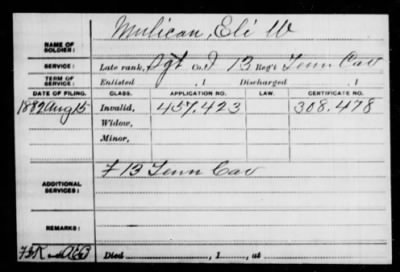 NAME OF SOLDIER: Mulican, Eli W
SERVICE: Late rank, Sgt Co. I 13 Reg't Tenn Cav
TERM OF SERVICE: Enlisted , 1 Discharged , 1
DATE OF FILING. CLASS. APPLICATION NO. LAW. CERTIFICATE NO.
1882 Aug 15 Invalid, 457.423 308.478
Widow,
Minor,
ADDITIONAL SERVICES: F 13 Tenn Cav
REMARKS:
Died , 1 , at